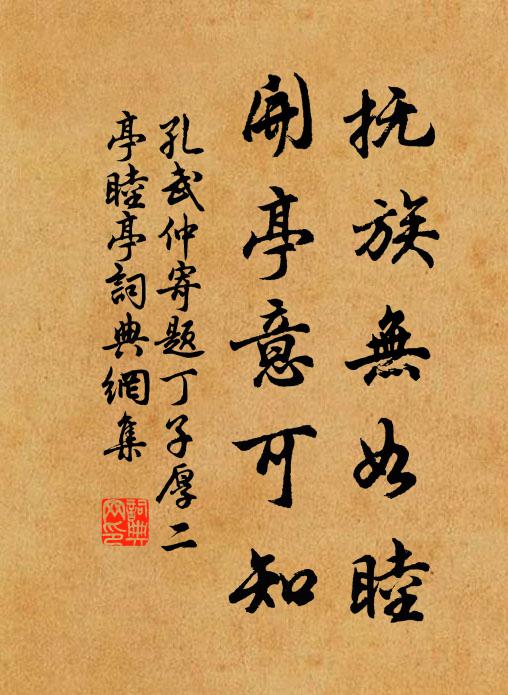 抚族無如睦
開亭意可知
孔武仲寄题丁子厚二
亭睦亭詞典網集
詞典网印